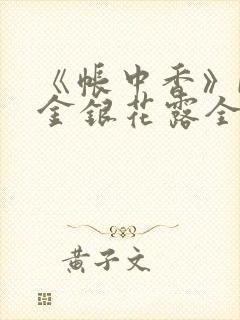 《帐中香》
金银花露全
黄子文